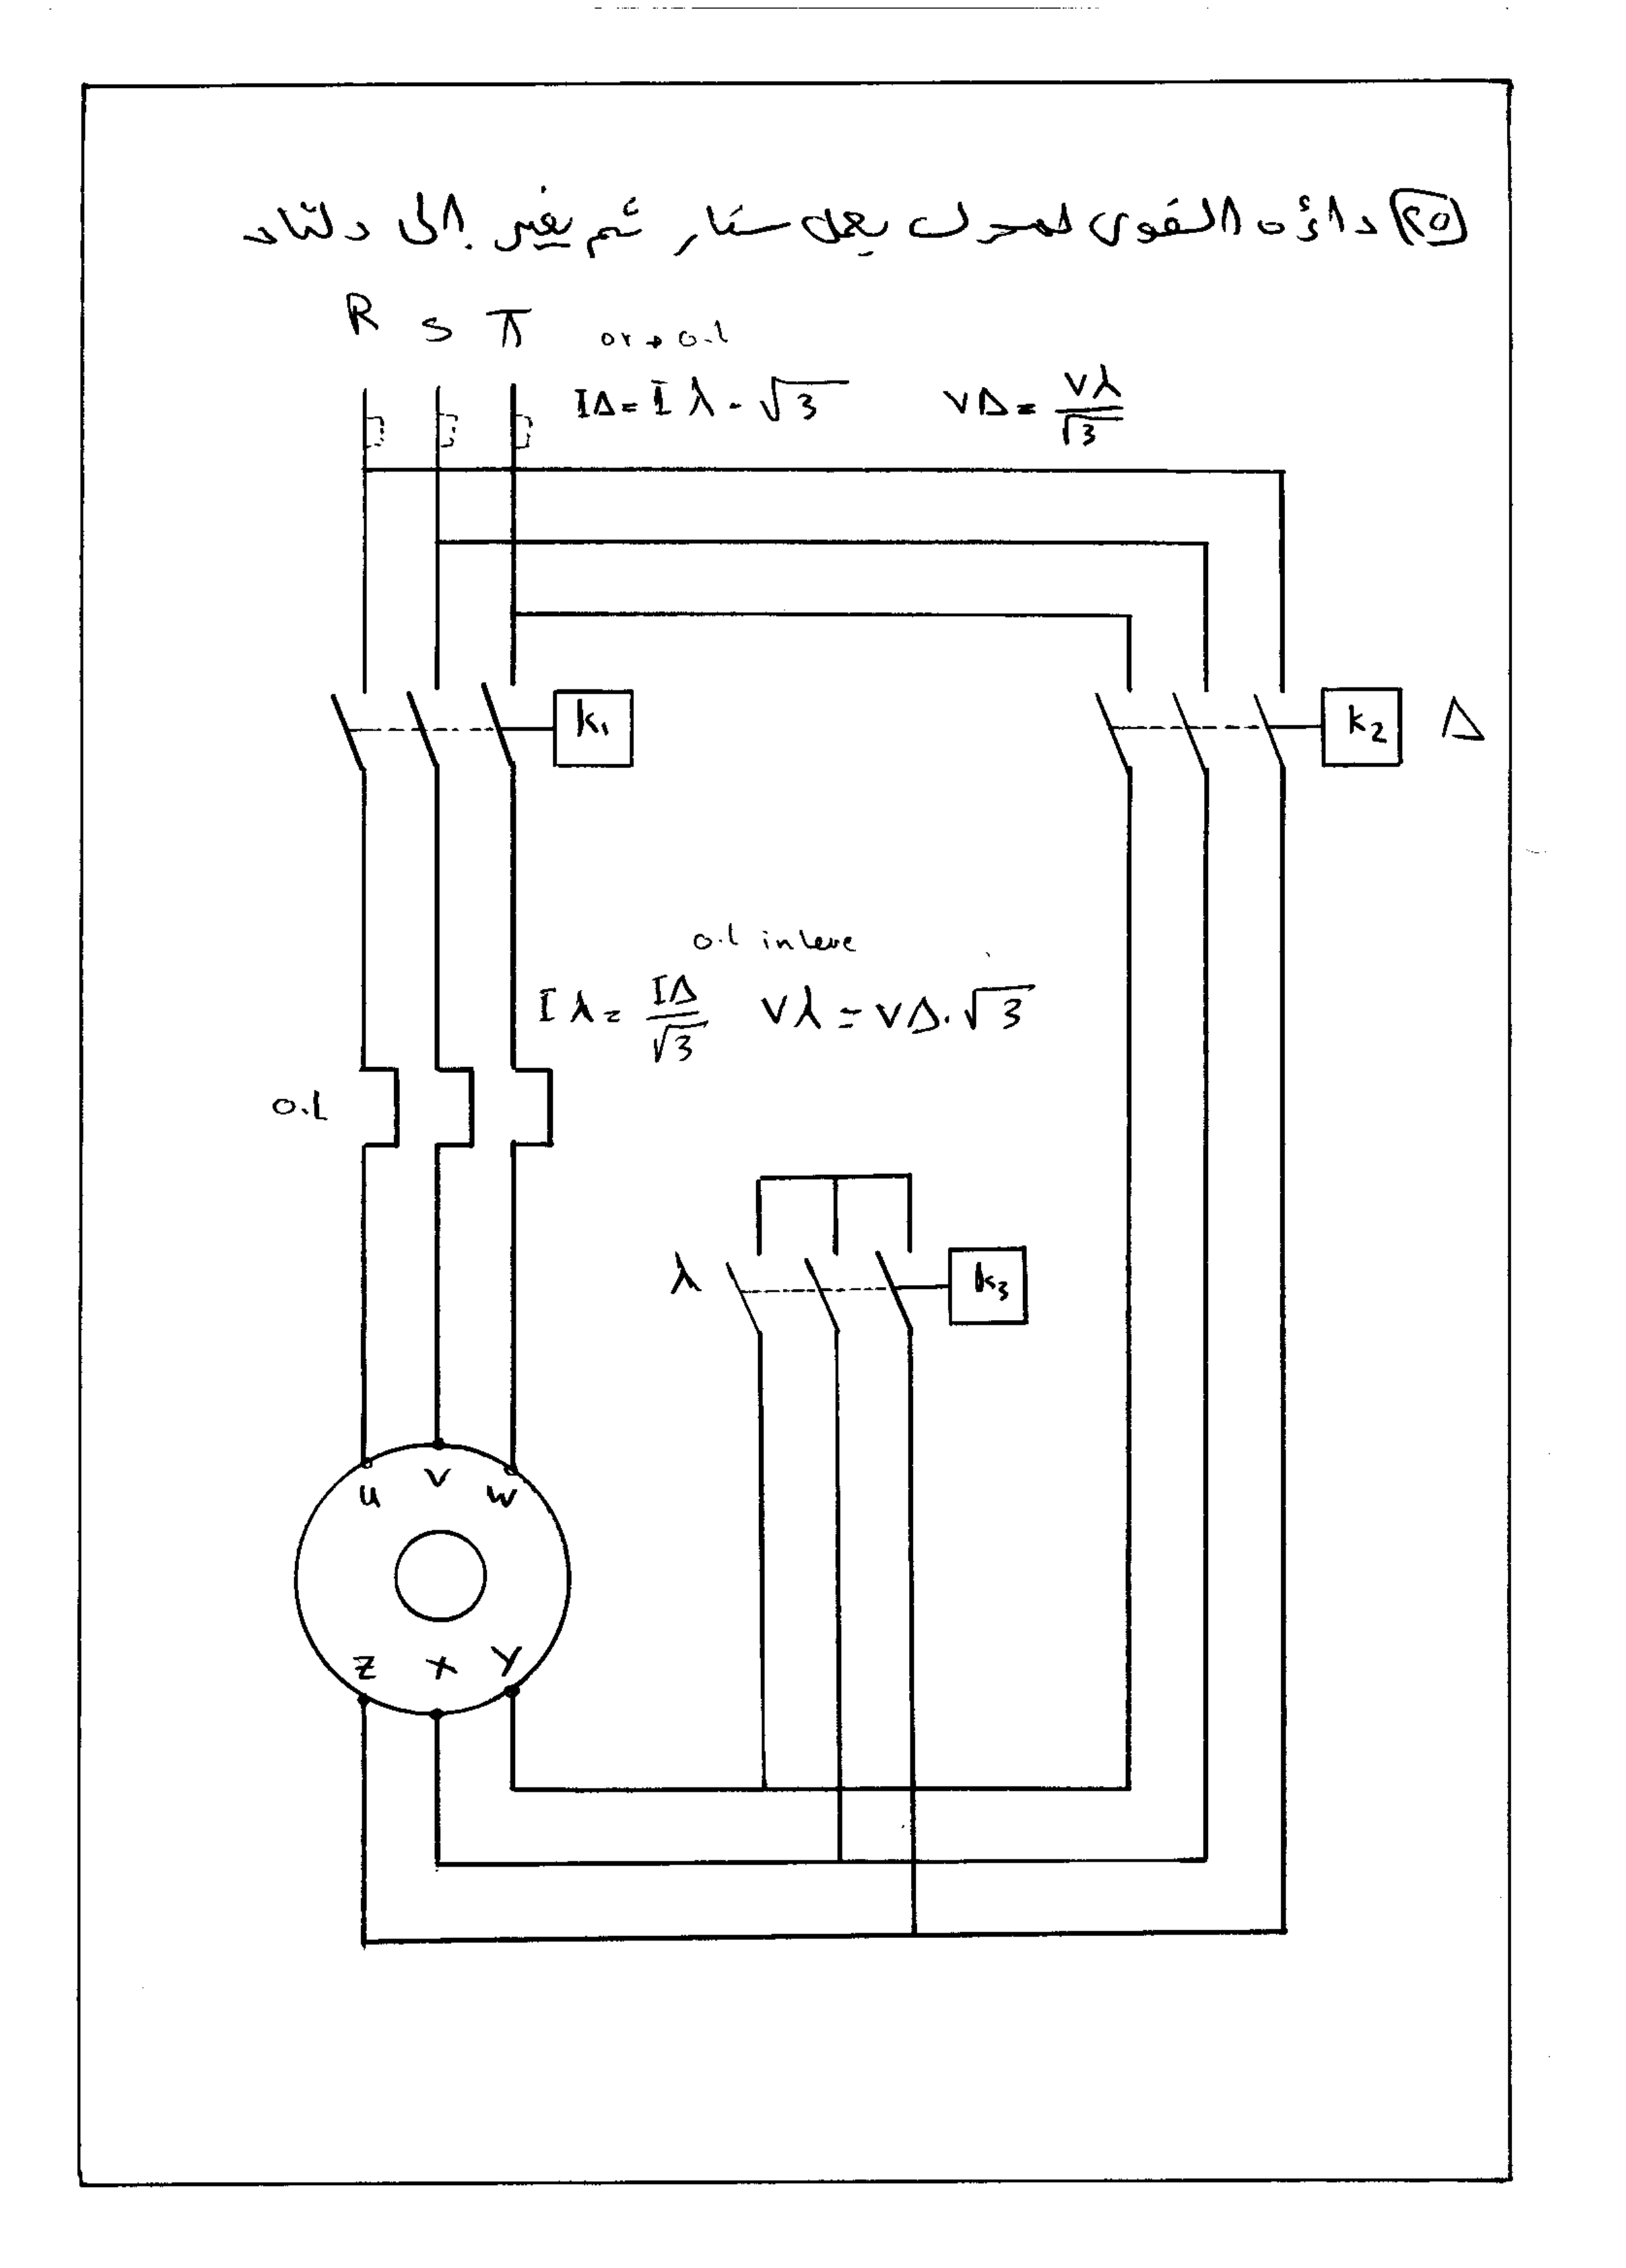 ٢٥ دائره القوى لمحرك يعمل ستار ثم يغير الى دلتا
R S T
or → o.l
IΔ = I λ . √3 VΔ = Vλ / √3
k1
k2 Δ
o.l in leve
I λ = IΔ / √3 Vλ = VΔ . √3
o.l
λ k3
u v w
z x y